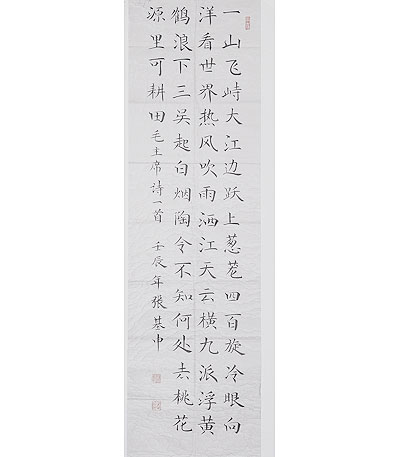 一山飞峙大江边跃上葱茏四百旋冷眼向
洋看世界热风吹雨洒江天云横九派浮黄
鹤浪下三吴起白烟陶令不知何处去桃花
源里可耕田毛主席詩一首 壬辰年張基中